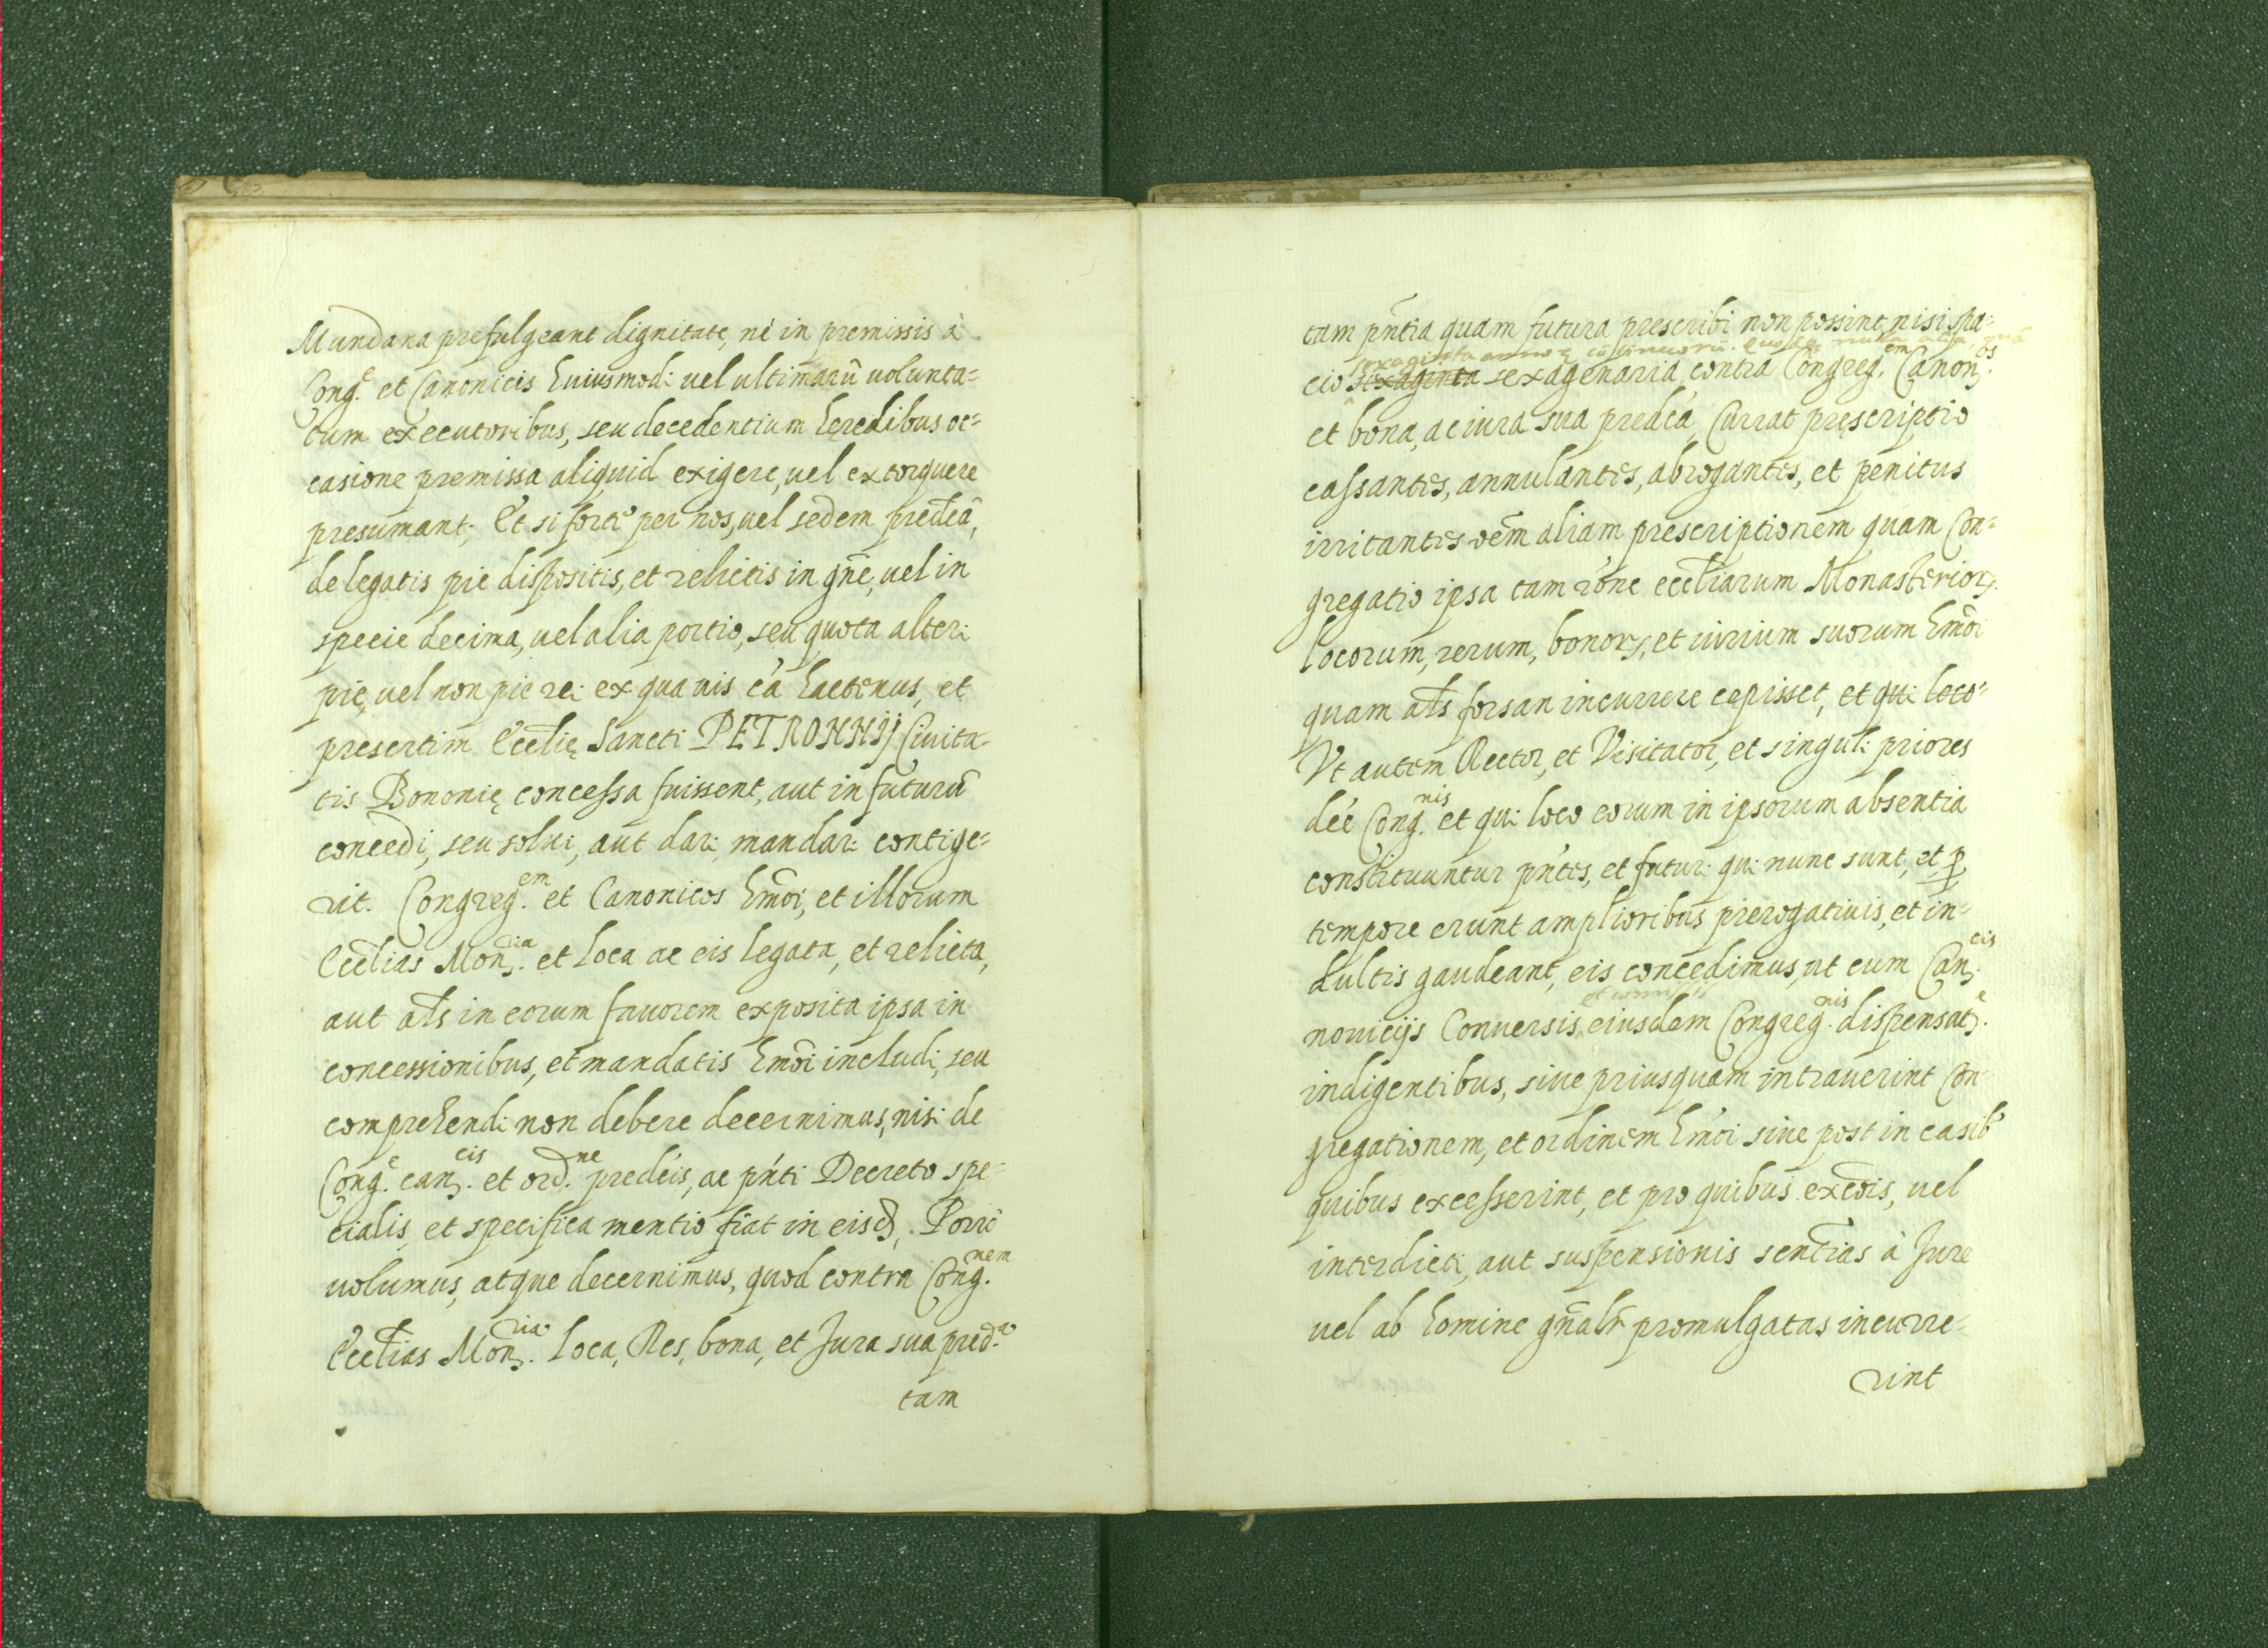 Mundana prefulgeant dignitate, nè in premissis à
Cong.e et Canonicis huiusmodi uel ultimarũ uolunta=
tum executoribus, seu decedentium hęredibus oc=
casione premissa aliquid exigere, uel extorquere
presumant; Et si forte per nos, uel sedem predictã,
de legatis pie dispositis, et relictis in gñe, uel in
specie decima, uel alia portio, seu quota alteri
pię, uel non pie rei ex quauis cá hactenus, et
presertim Eccłię Sancti PETRONNIJ Ciuita-
tis Bononię concessa fuissent, aut in futurũ
concedi, seu solui, aut dari mandari contige=
rit. Congreg.em et Canonicos hmõi, et illorum
Eccłias Mon.ria et loca ac eis legata, et relicta,
aut ałs in eorum fauorem exposita ipsa in
concessionibus, et mandatis hmõi includi, seu
comprehendi non debere decernimus, nisi de
Cong.e can.cis et ord.ne predcis, ac pnti Decreto spe=
cialis, et specifica mentio fiat in eisd, Porro
uolumus, atque decernimus, quod contra Cong.nem
Eccłias Mon.ria loca, Res, bona, et Jura sua pred.a
tam
tam pñtia quam futura prescribi non possint, nisi spa=
sexaginta annoꝝ cõtinuorũ. Quodq; nulla alia, quã
cio sexaginta sexagenaria contra Congreg.em Canon.os
et bona, ac iura sua predca, Currat pręscriptio
cassantes, annulantes, abrogantes, et penitus
irritantes oẽm aliam prescriptionem quam Con=
gregatio ipsa tam rõne eccłiarum Monasterioꝝ.
locorum, rerum, bonoꝝ, et iurium suorum hmõi
quam ałs forsan incurrere cepisset, et qui loco-
Vt autem Rector, et Visitator, et singuli priores
dce Cong.nis et qui loco eorum in ipsorum absentia
constituuntur pntes, et futuri qui nunc sunt, et ꝑ
tempore erunt amplioribus prerogatiuis, et in=
dultis gaudeant, eis concedimus, ut cum Can.cis
et commissis
nouicijs Conuersis, eiusdem Congreg.nis dispensat.e
indigentibus, siue priusquam intrauerint Con
gregationem, et ordinem hmõi siue post in casib'
quibus excesserint, et pro quibus excõis, uel
interdicti, aut suspensionis sentłias à Jure
uel ab homine gñalr promulgatas incurre=
rint